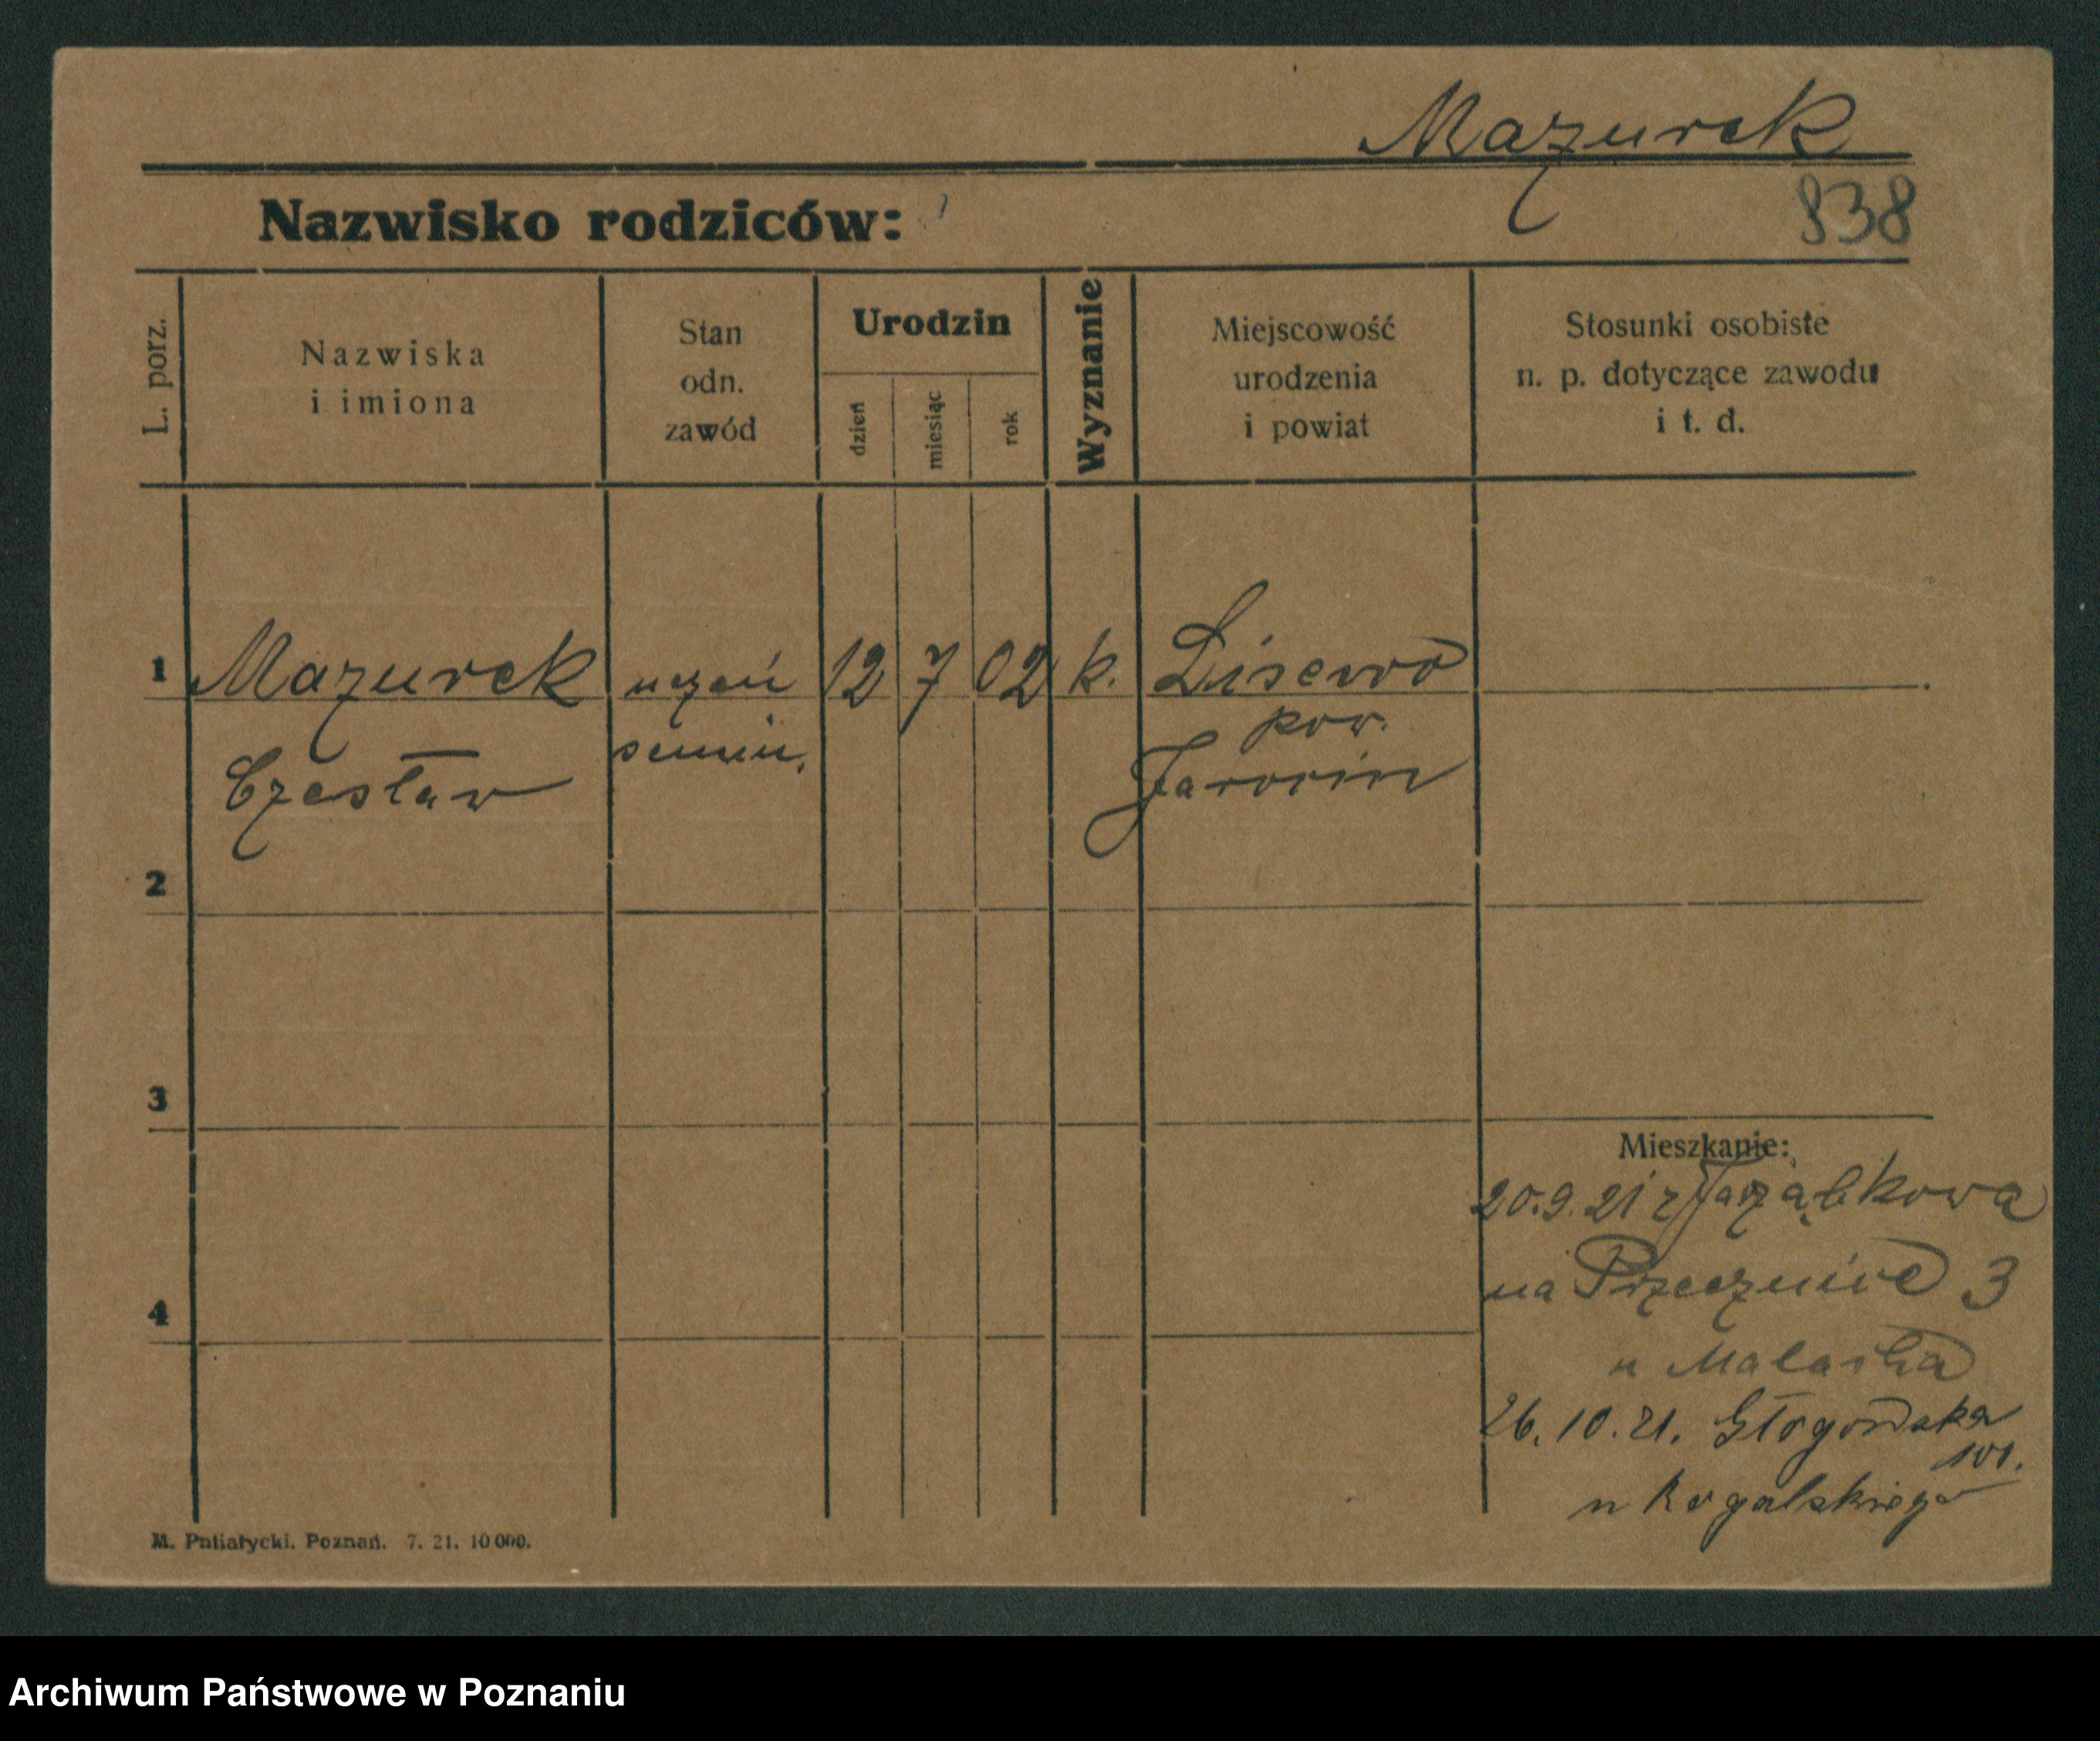 Mazurek
838
Nazwisko rodziców:
L. porz.
Nazwiska
i imiona
Stan
odn.
zawód
Urodzin
dzień
miesiąc
rok
Wyznanie
Miejscowość
urodzenia
i powiat
Stosunki osobiste
n. p. dotyczące zawodu
i t. d.
1 Mazurek uczeń 12 7 02 k. Lisewo
Czesław semin. pow.
Jarocin
2
3
4
Mieszkanie:
20.9.21 z Jarząbkowa
na Przecznice 3
u
26.10.21. Głogowska
101.
u Rogalskiego
M. Pniiatycki. Poznań. 7. 21. 10 000.
Archiwum Państwowe w Poznaniu